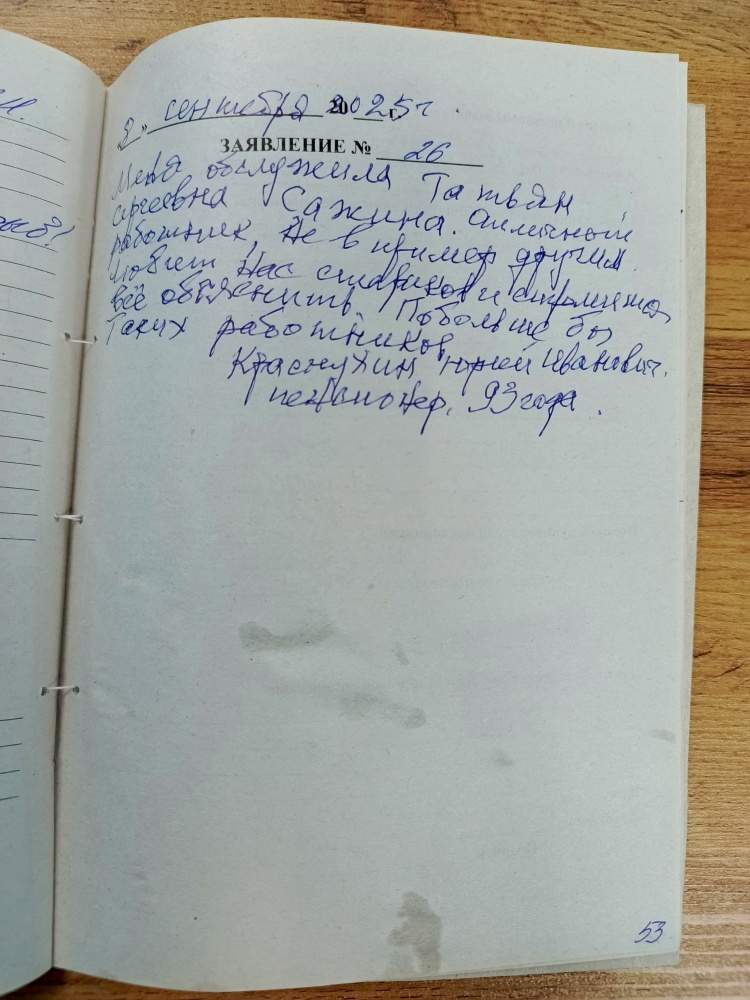 2 " сентября 2025 г.
ЗАЯВЛЕНИЕ № 26
Меня обслужила Татьяна
Сергеевна Сажина. Отличный
работник, не в пример другим.
Любит нас стариков и стремится
всё объяснить. Побольше бы
таких работников.
Краснухин Юрий Иванович.
пенсионер, 93 года.
53